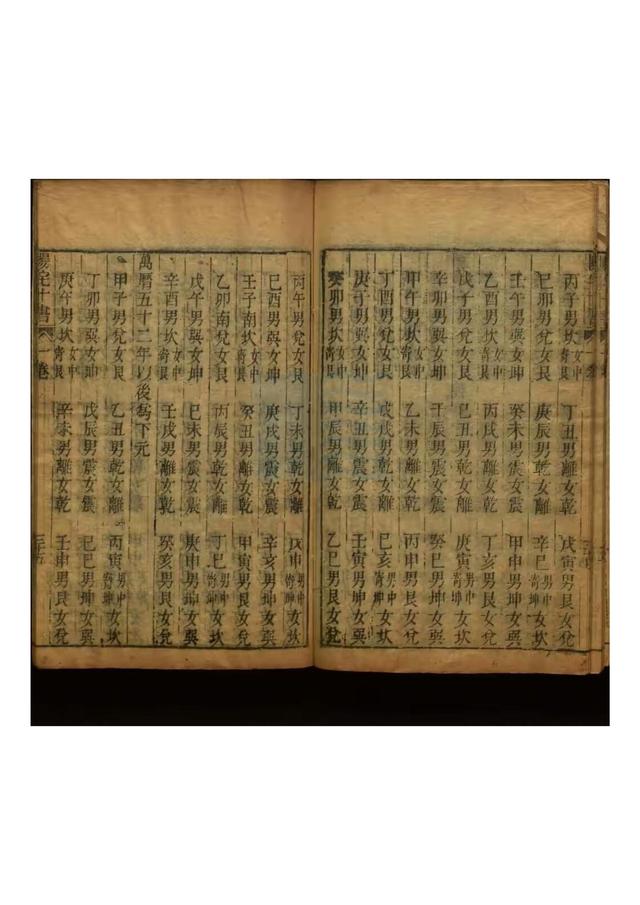 丙子男坎女中寄艮 丁丑男離女乾 戊寅男艮女兌
己卯男兌女艮 庚辰男乾女離 辛巳男中寄坤女坎
壬午男巽女坤 癸未男震女震 甲申男坤女巽
乙酉男坎女中寄艮 丙戌男離女乾 丁亥男艮女兌
戊子男兌女艮 己丑男乾女離 庚寅男中寄坤女坎
辛卯男巽女坤 壬辰男震女震 癸巳男坤女巽
甲午男坎女中寄艮 乙未男離女乾 丙申男艮女兌
丁酉男兌女艮 戊戌男乾女離 己亥男中寄坤女坎
庚子男巽女坤 辛丑男震女震 壬寅男坤女巽
癸卯男坎女中寄艮 甲辰男離女乾 乙巳男艮女兌
丙午男兌女艮 丁未男乾女離 戊申男中寄坤女坎
己酉男巽女坤 庚戌男震女震 辛亥男坤女巽
壬子南坎女中寄艮 癸丑男離女乾 甲寅男艮女兌
乙卯南兌女艮 丙辰男乾女離 丁巳男中寄坤女坎
戊午男巽女坤 己未男震女震 庚申男坤女巽
辛酉男坎女中寄艮 壬戌男離女乾 癸亥男艮女兌
萬曆五十二年以後為下元
甲子男兌女艮 乙丑男乾女離 丙寅男中寄坤女坎
丁卯男巽女坤 戊辰男震女震 己巳男坤女巽
庚午男坎女中寄艮 辛未男離女乾 壬申男艮女兌
陽宅十書 一卷 三十五